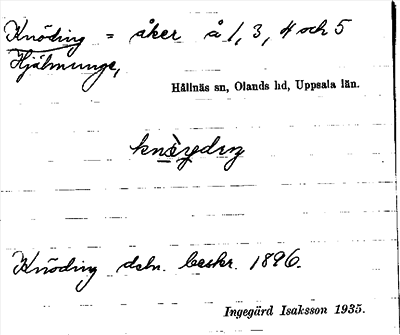 Knöding = åker å 1, 3, 4 och 5
Hjälmunge,
Hållnäs sn, Olands hd, Uppsala län.
Knöding dsbn. beskr. 1896.
Ingegärd Isaksson 1935.